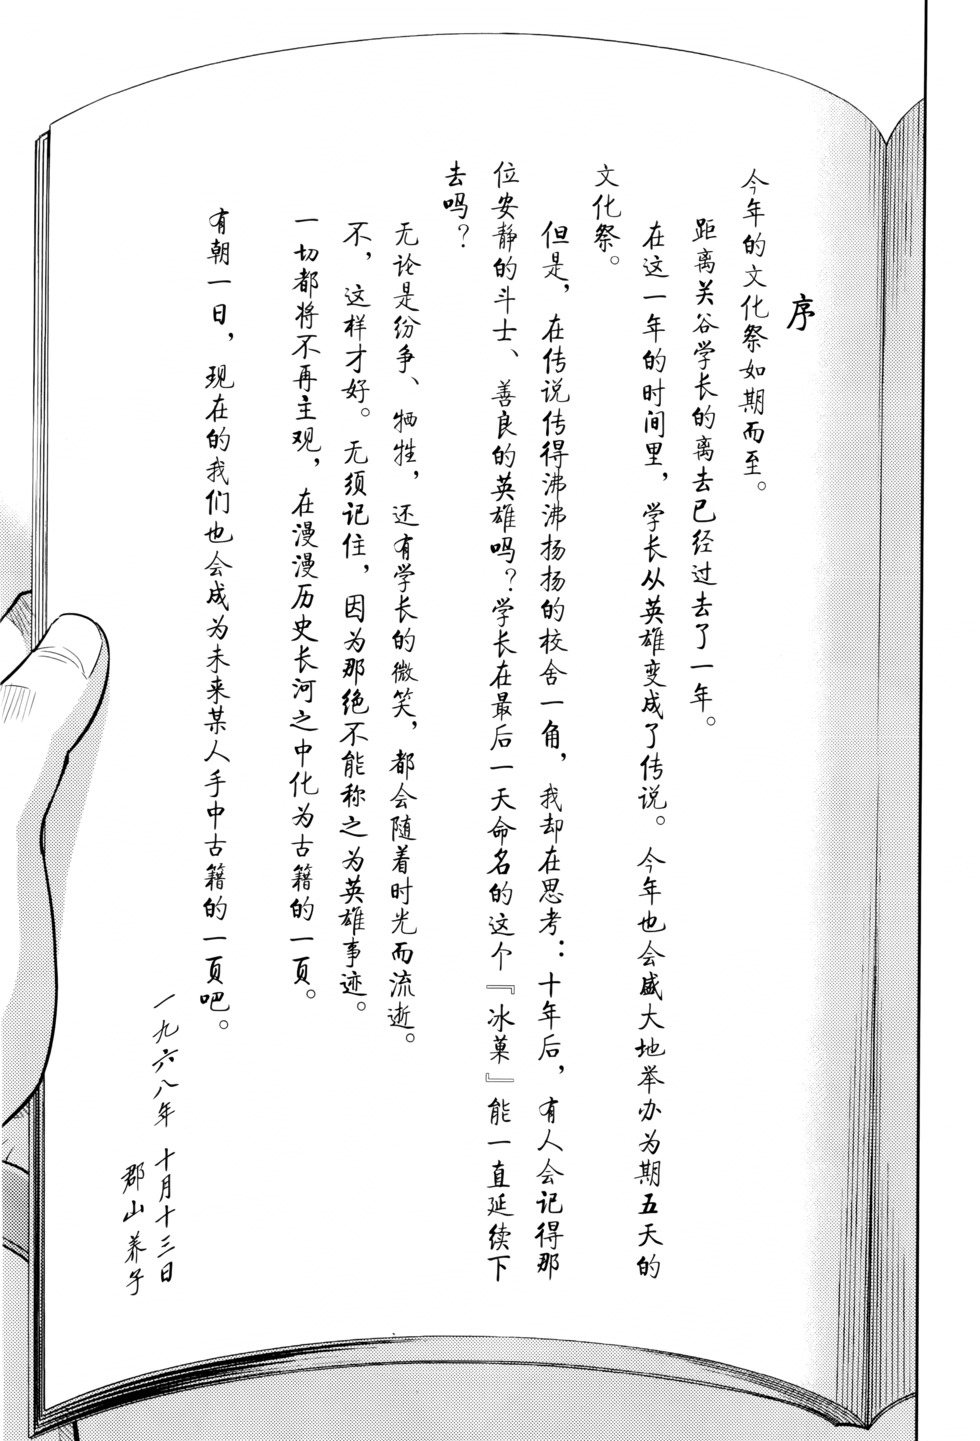 序
今年的文化祭如期而至。
距离关谷学长的离去已经过去了一年。
在这一年的时间里，学长从英雄变成了传说。今年也会盛大地举办为期五天的
文化祭。
但是，在传说传得沸沸扬扬的校舍一角，我却在思考：十年后，有人会记得那
位安静的斗士、善良的英雄吗？学长在最后一天命名的这个『冰菓』能一直延续下
去吗？
无论是纷争、牺牲，还有学长的微笑，都会随着时光而流逝。
不，这样才好。无须记住，因为那绝不能称之为英雄事迹。
一切都将不再主观，在漫漫历史长河之中化为古籍的一页。
有朝一日，现在的我们也会成为未来某人手中古籍的一页吧。
一九六八年 十月十三日
郡山养子